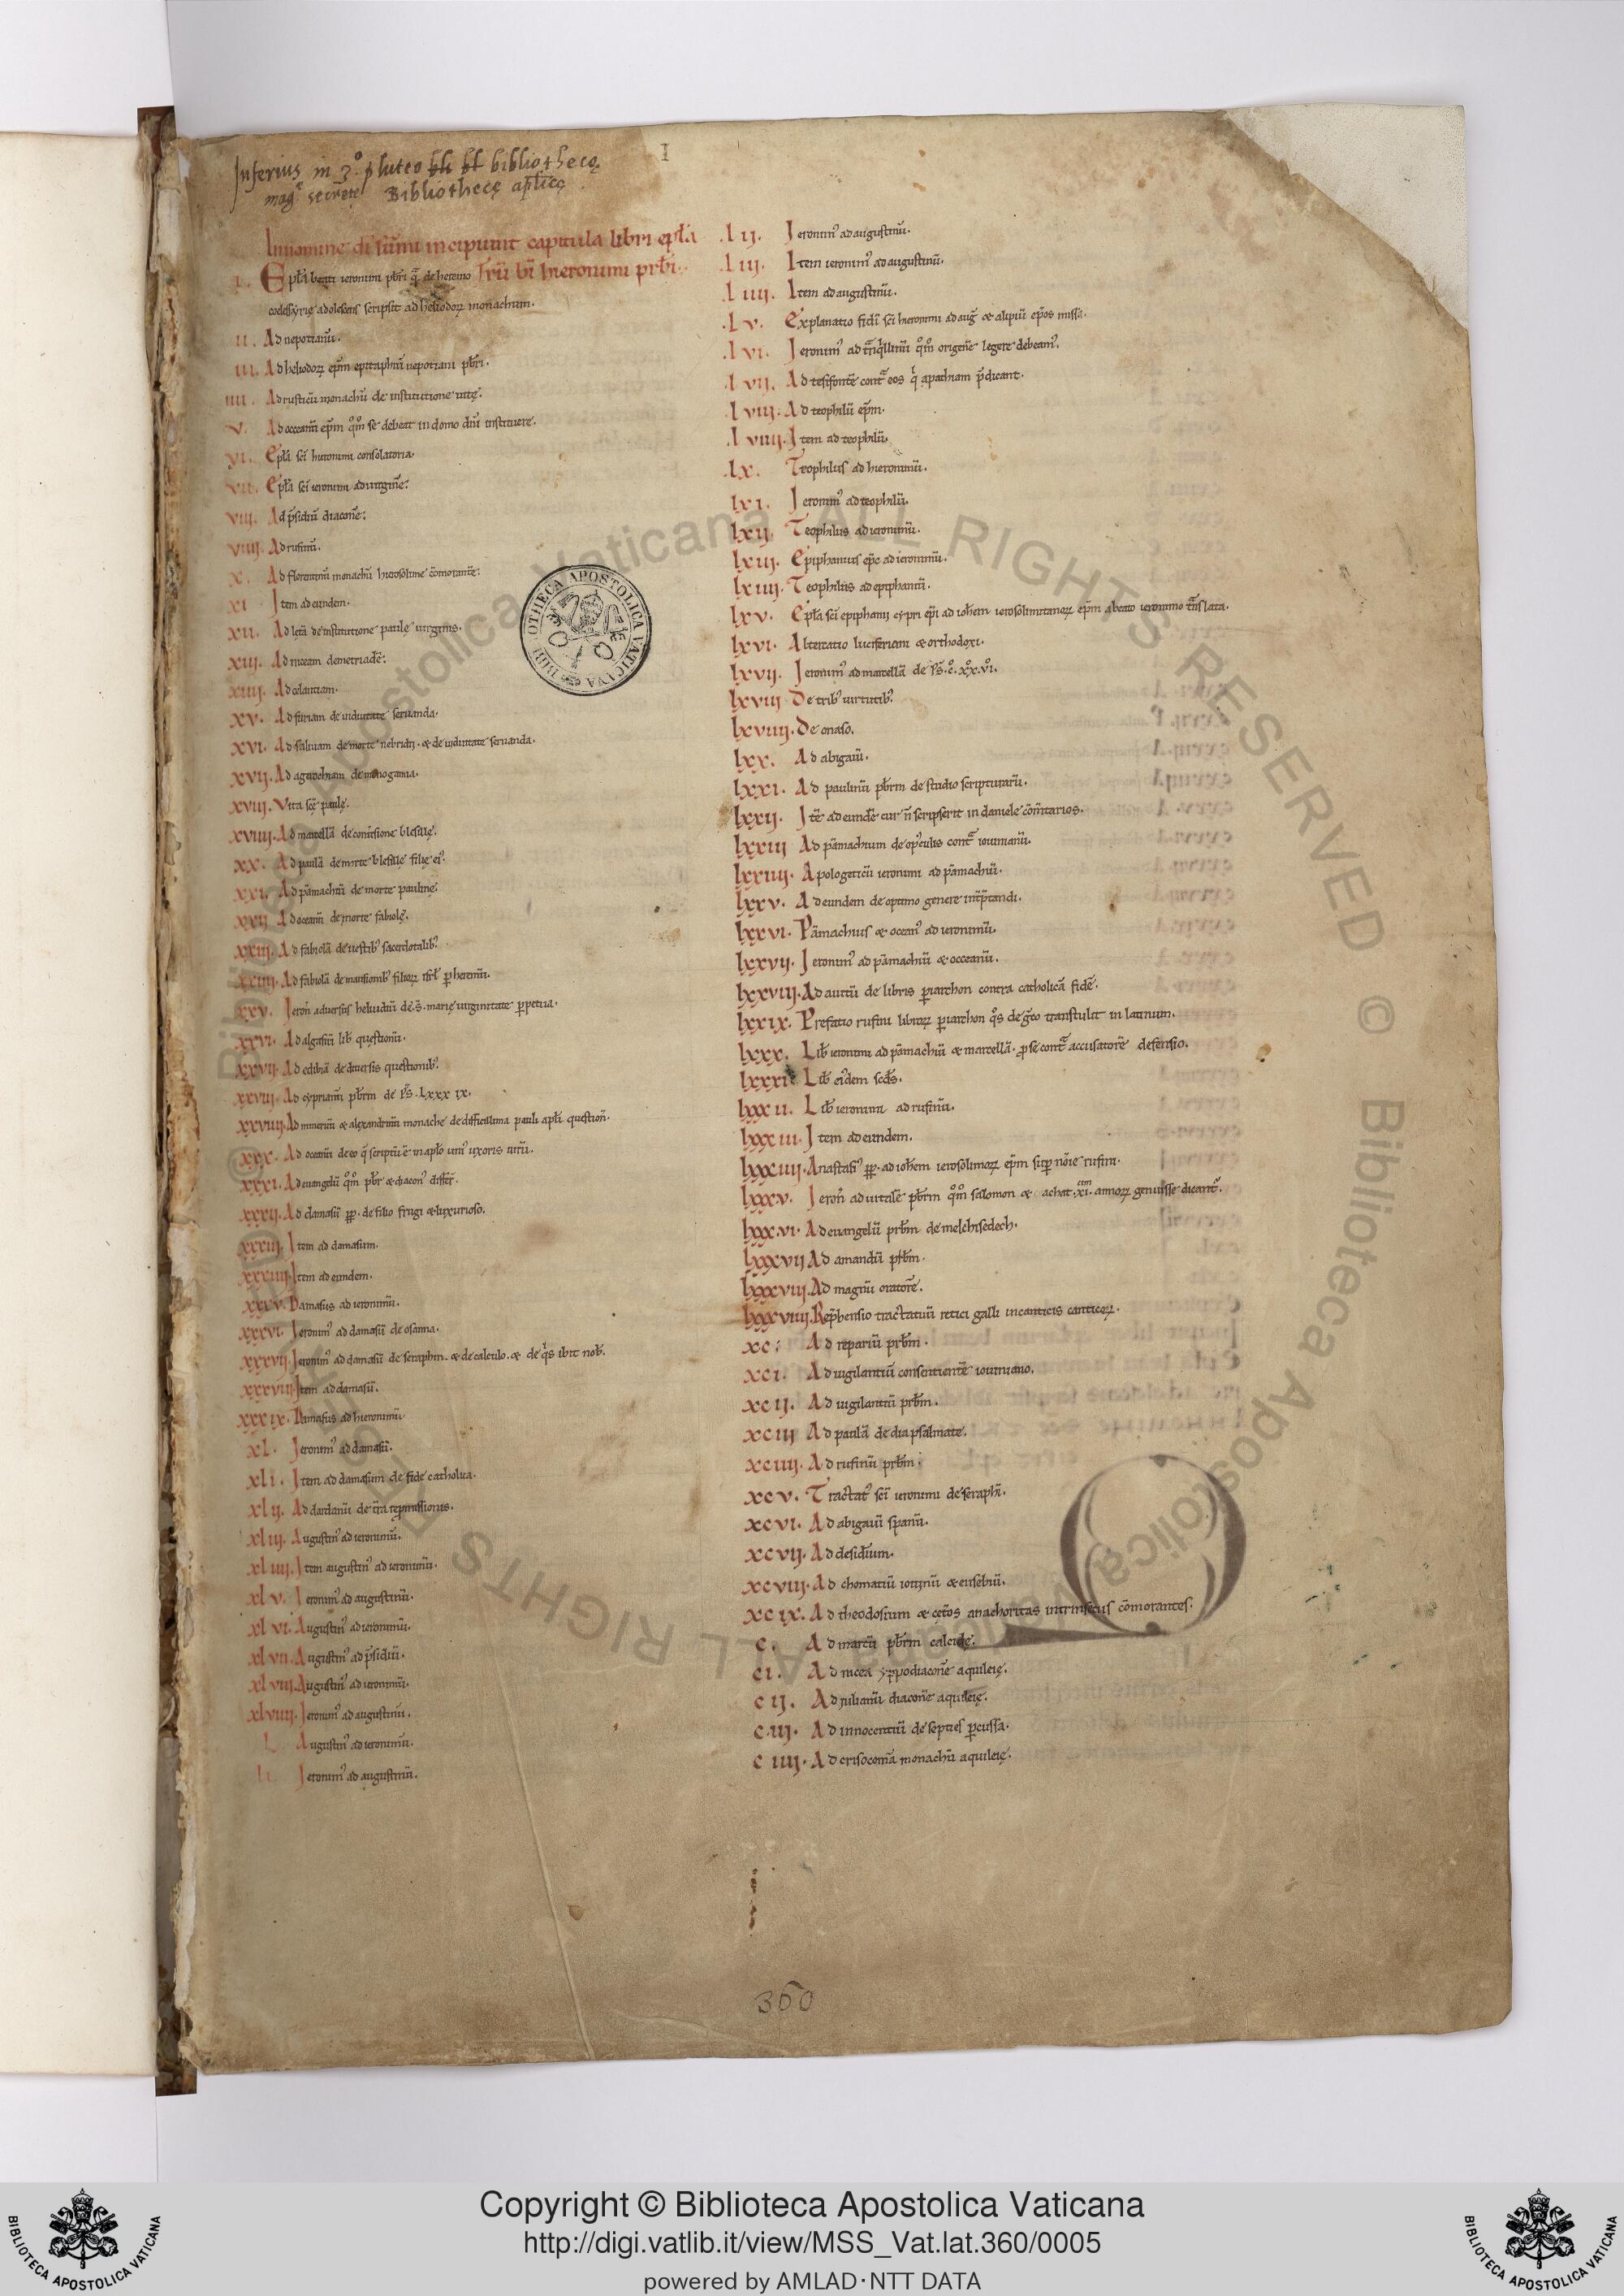 Inferius in 3º pluteo bibliothecę
magᵉ secrete Bibliothecę aplicę
I
Innomine dī sūmi incipiunt capitula libri eplā
I. Epłā beati ieronimi pbr̄i q̄ de heremo rū bī hieronimi prb̄i.
ad heliodoꝝ monachum.
II. Ad nepotianū.
III. Ad heliodoꝝ ep̄m epitaphiū nepotiani pb̄ri.
IIII. Ad rusticū monachū de institutione uitę.
V. Ad occeanū ep̄m qͦm se debeat in domo dn̄i instituere.
VI. Epłā sc̄i hieronimi consolatoria.
VII. Epłā sc̄i ieronimi ad uirginē.
VIII. Ad p̄sidiū diaconē.
VIIII. Ad rufinū.
X. Ad florentiū monachū hierosolime cōmorantē.
XI. Item ad eundem.
XII. Ad letā de institutione paulę uirginis.
XIII. Ad demetriadē.
XIIII. Ad celantiam.
XV. Ad furiam de uiduitate seruanda.
XVI. Ad saluinam de morte nebridij. & de uiduitate seruanda.
XVII. Ad agerochiam de monogamia.
XVIII. Vita sc̄ę paulę.
XVIIII. Ad marcellā de blesillę.
XX. Ad paulā de morte blesillę filię ei'.
XXI. Ad pāmachiū de morte paulinę.
XXII. Ad oceanū de morte fabiolę.
XXIII. Ad fabiolā de uestib' sacerdotalib'.
XXIIII. Ad fabiolā de mansionib' filioꝝ isrł p heremū.
XXV. Ieron̄ aduersus heluidiū de s. marię uirginitate ꝑpetua.
XXVI. Ad algasiā lib' questionū.
XXVII. Ad edibiā de diuersis questionib'.
XXVIII. Ad cyprianū pb̄rm de ps̄. LXXXIX.
XXVIIII. Ad mineriū & alexandriū monachę de difficillima pauli apłi question̄.
XXX. Ad oceanū de eo q̄ scriptū ē in apło uni' uxoris uirū.
XXXI. Ad euangelū qͦm pb̄r & diacon' differ̄.
XXXII. Ad damasū ꝑꝑ. de filio frugi & luxurioso.
XXXIII. Item ad damasum.
XXXIIII. Item ad eundem.
XXXV. Damasus ad ieronimū.
XXXVI. Ieronim' ad damasū de osanna.
XXXVII. Ieronim' ad damasū de seraphin. & de calculo. & de q̄s ibit nob̄.
XXXVIII. Item ad damasū.
XXXIX. Damasus ad hieronimū
XL. Ieronim' ad damasū.
XLI. Item ad damasum de fide catholica.
XLII. Ad dardanū de t̄ra repmissionis.
XLIII. Augustin' ad ieronimū.
XLIIII. Item augustin' ad ieronimū.
XLV. Ieronim' ad augustinū.
XLVI. Augustin' ad ieronimū.
XLVII. Augustin' ad p̄sidiū.
XLVIII. Augustin' ad ieronimū.
XLVIIII. Ieronim' ad augustinū.
L. Augustin' ad ieronimū.
LI. Ieronim' ad augustinū.
LII. Ieronim' ad augustinū.
LIII. Item ieronim' ad augustinū.
LIIII. Item ad augustinū.
LV. Explanatio fidī sc̄i hieronimi ad auḡ & alipiū ep̄os missa.
LVI. Ieronim' ad trāqͥllinū qͦm origenē legere debeam'.
LVII. Ad tesifontē cont̄ eos qͥ apathiam p̄dicant.
LVIII. Ad teophilū ep̄m.
LVIIII. Item ad teophilū.
LX. Teophilus ad hieronimū.
LXI. Ieronim' ad teophilū.
LXII. Teophilus ad ieronimū.
LXIII. Epiphanius ep̄c ad ieronimū.
LXIIII. Teophilus ad epiphaniū.
LXV. Epłā sc̄i epiphanij cypri ep̄i ad ioh̄em ierosolimitanoꝝ ep̄m a beato ieronimo trāslata.
LXVI. Altercatio luciferiani & orthodoxi.
LXVII. Ieronim' ad marcellā de ps̄. cͦ. xͦxͦ.vͦiͦ.
LXVIII. De trib' uirtutib'.
LXVIIII. De onaso.
LXX. Ad abigaū.
LXXI. Ad paulinū pb̄rm de studio scripturarū.
LXXII. Itē ad eundē cur n̄ scripserit in daniele cōmtarios.
LXXIII. Ad pāmachium de opculis cont̄ iouinianū.
LXXIIII. Apologeticū ieronimi ad pāmachiū.
LXXV. Ad eundem de optimo genere intp̄tandi.
LXXVI. Pāmachius & ocean' ad ieronimū.
LXXVII. Ieronim' ad pāmachiū & occeanū.
LXXVIII. Ad auitū de libris ꝑiarchon contra catholicā fidē.
LXXIX. Prefatio rufini libroꝝ ꝑiarchon qͦs de gͨo transtulit in latinum.
LXXX. Lib' ieronimi ad pāmachiū & marcellā. ꝓ se cont̄ accusatorē defensio.
LXXXI. Lib' ei'dem sc̄ds.
LXXXII. Lib' ieronimi ad rufinū.
LXXXIII. Item ad eundem.
LXXXIIII. Anastasi' ꝑꝑ. ad ioh̄em ierosolimoꝝ ep̄m sup nōie rufini.
LXXXV. Ieron̄ ad uitalē pb̄rm qͦm salomon & achat .xi. annoꝝ genuisse dicant'.
LXXXVI. Ad euangelū prb̄m de melchisedech.
LXXXVII. Ad amandū prb̄m.
LXXXVIII. Ad magnū oratorē.
LXXXVIIII. Rep̄hensio tractatuū retici galli in canticis canticoꝝ.
XC. Ad ripariū prb̄m.
XCI. Ad uigilantiū consentientē iouiniano.
XCII. Ad uigilantiū prb̄m.
XCIII. Ad paulā de diapsalmate.
XCIIII. Ad rufinū prb̄m.
XCV. Tractat' sc̄i ieronimi de seraphī.
XCVI. Ad abigaū spanū.
XCVII. Ad desidium.
XCVIII. Ad chomatiū iouinū & eusebiū.
XCIX. Ad theodosium & cet̄os anachoritas intrinsecus cōmorantes.
C. Ad marcū pb̄rm calcide.
CI. Ad nicea ypodiaconē aquileię.
CII. Ad iulianū diaconē aquileię.
CIII. Ad innocentiū de septies pcussa.
CIIII. Ad crisocomā monachū aquileię.
BIBLIOTHECA APOSTOLICA VATICANA
360
© Biblioteca Apostolica Vaticana ALL RIGHTS RESERVED © Biblioteca Apostolica Vaticana ALL RIGHTS RESERVED
BIBLIOTECA APOSTOLICA VATICANA
Copyright © Biblioteca Apostolica Vaticana
http://digi.vatlib.it/view/MSS_Vat.lat.360/0005
powered by AMLAD·NTT DATA
BIBLIOTECA APOSTOLICA VATICANA